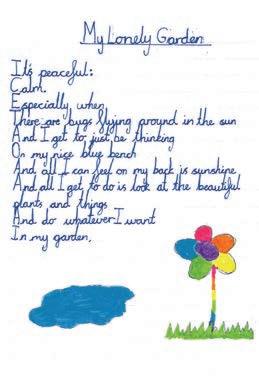 My Lonely Garden
It's peaceful:
Calm.
Especially when,
There are bugs flying around in the sun
And I get to just be thinking
On my nice blue bench
And all I can feel on my back is sunshine
And all I get to do is look at the beautiful
plants and things
And do whatever I want
In my garden.